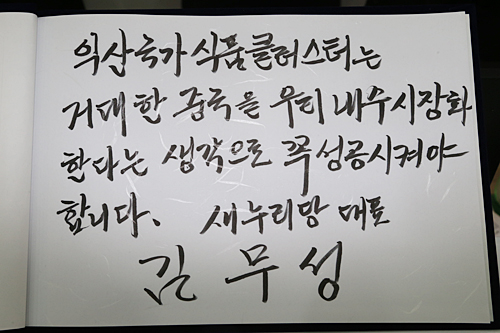 익산국가 식품클러스터는
거대한 중국을 우리 내수시장화
한다는 생각으로 꼭 성공시켜야
합니다. 새누리당 대표
김무성